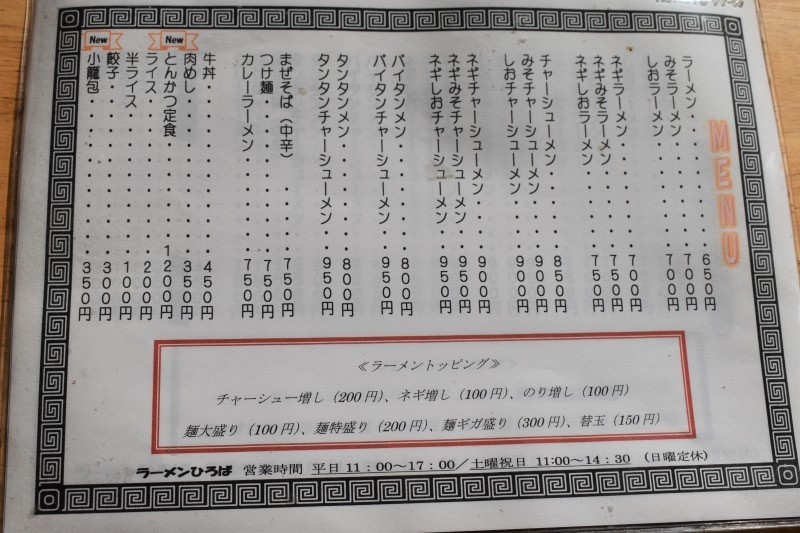 MENU
ラーメン・・・・・・・650円
みそラーメン・・・・・700円
しおラーメン・・・・・700円
ネギラーメン・・・・・700円
ネギみそラーメン・・・750円
ネギしおラーメン・・・750円
チャーシューメン・・・850円
みそチャーシューメン・・900円
しおチャーシューメン・・900円
ネギチャーシューメン・・900円
ネギみそチャーシューメン・950円
ネギしおチャーシューメン・950円
パイタンメン・・・・・800円
パイタンチャーシューメン・・950円
タンタンメン・・・・・800円
タンタンチャーシューメン・・950円
まぜそば（中辛）・・・・750円
つけ麺・・・・・・・・750円
カレーラーメン・・・・・750円
牛丼・・・・・・・・・450円
肉めし・・・・・・・・350円
New
とんかつ定食・・・・・1200円
ライス・・・・・・・・200円
半ライス・・・・・・・100円
餃子・・・・・・・・・300円
New
小籠包・・・・・・・・350円
≪ラーメントッピング≫
チャーシュー増し（200円）、ネギ増し（100円）、のり増し（100円）
麺大盛り（100円）、麺特盛り（200円）、麺ギガ盛り（300円）、替玉（150円）
ラーメンひろば 営業時間 平日11：00～17：00／土曜祝日 11:00～14：30 （日曜定休）